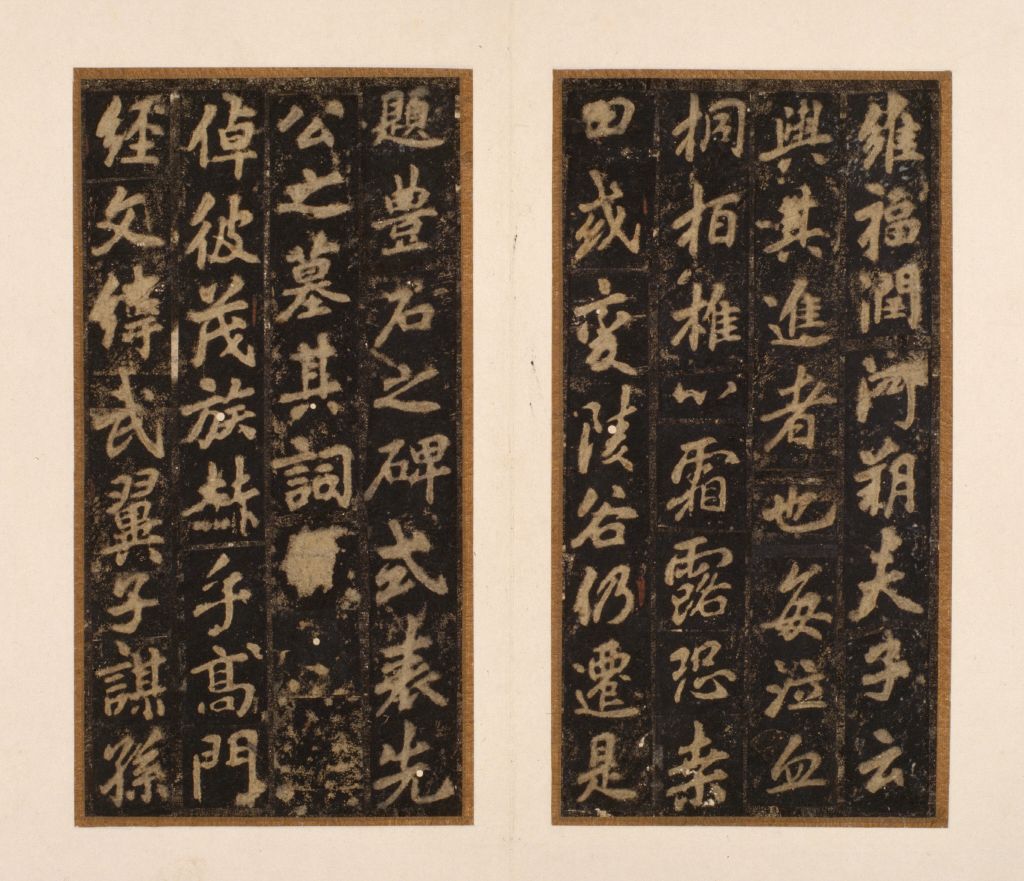 維福潤河朔夫子云
與其進者也每泣血
桐栢摧心霜露恐桒
田或變陵谷仍遷是
題豊石之碑式表先
公之墓其詞
倬彼茂族赫乎髙門
經文緯武翼子謀孫